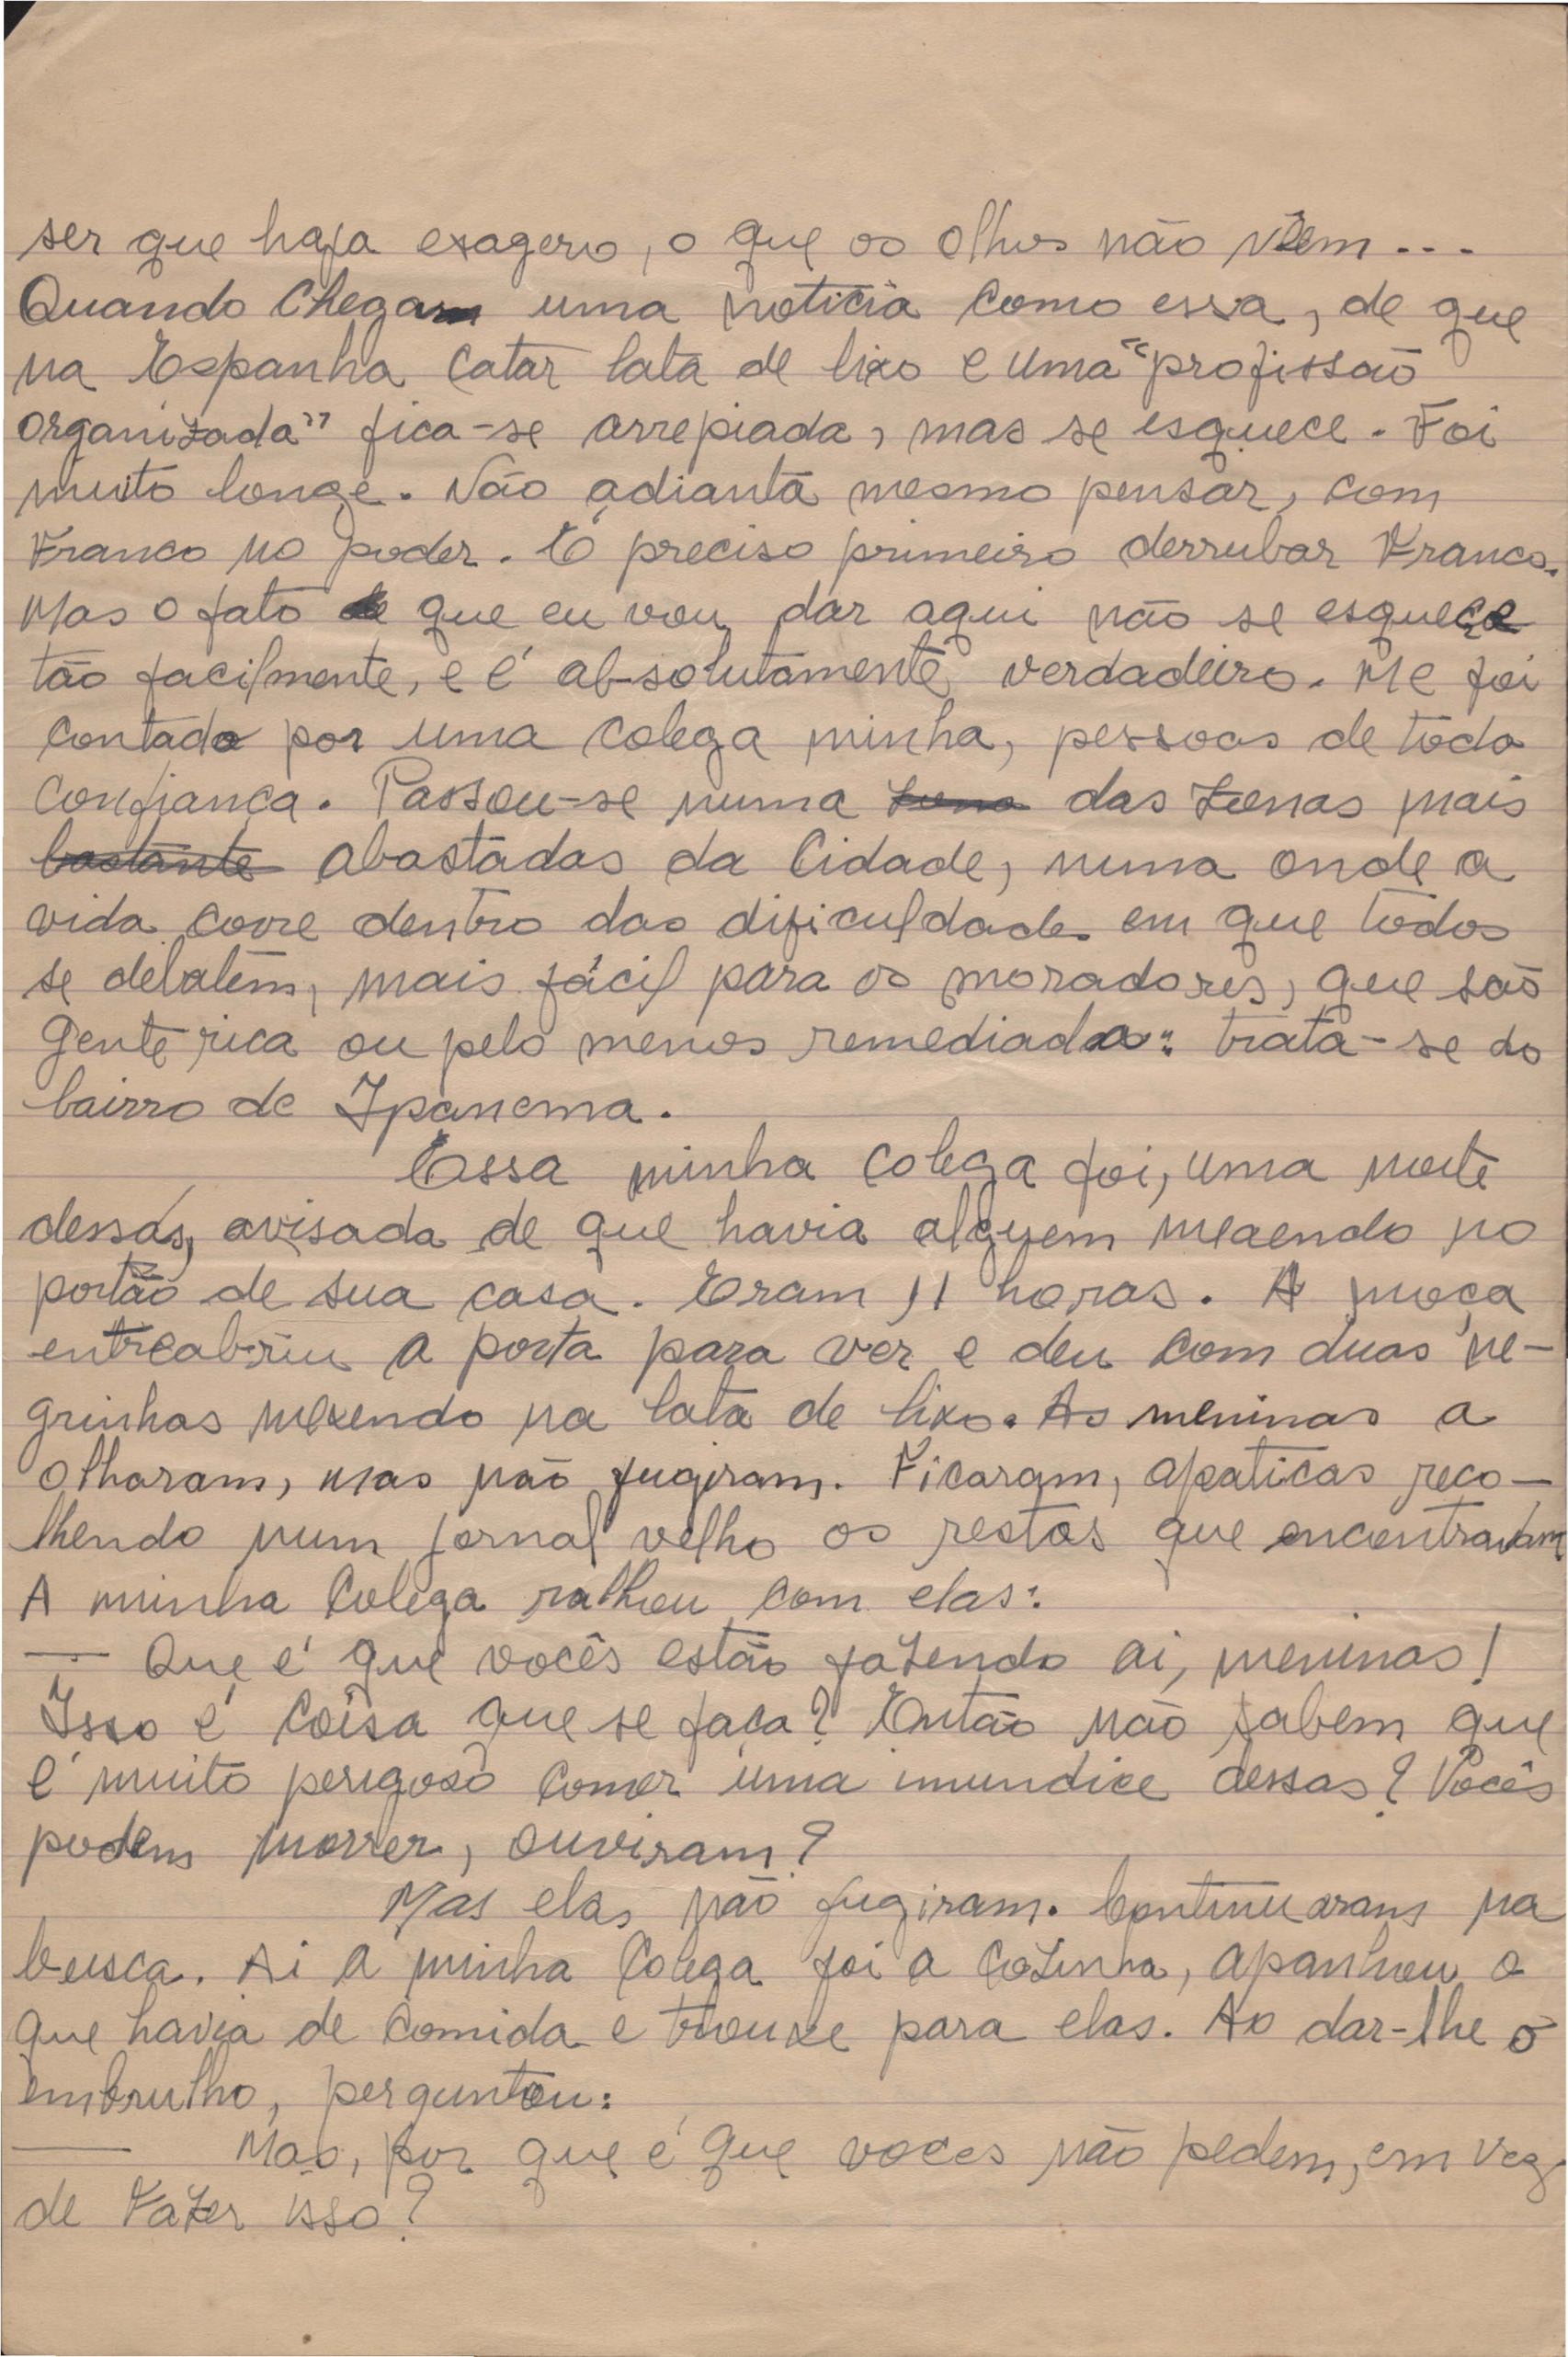 ser que haja exagero, o que os olhos não vêem...
Quando chega uma noticia como essa, de que
na Espanha catar lata de lixo e uma "profissão
organizada" fica-se arrepiada, mas se esquece. Foi
muito longe. Não adianta mesmo pensar, com
Franco no poder. É preciso primeiro derrubar Franco.
Mas o fato que eu vou dar aqui não se esquece
tão facilmente, e é absolutamente verdadeiro. Me foi
contado por uma colega minha, pessoas de tôda
confiança. Passou-se numa zona das zonas mais
bastante abastadas da cidade, numa onde a
vida corre dentro das dificuldades em que todos
se debatem, mais fácil para os moradores, que são
gente rica ou pelo menos remediada: trata-se do
bairro de Ipanema.
Essa minha colega foi, uma noite
dessas, avisada de que havia alguem mexendo no
portão de sua casa. Eram 11 horas. A moça
entreabriu a porta para ver e deu com duas ne-
grinhas mexendo na lata de lixo. As meninas a
olharam, mas não fugiram. Ficaram, apaticas reco-
lhendo num jornal velho os restos que encontravam
A minha colega ralhou com elas:
— Que é que vocês estão fazendo ai, meninas!
Isso é coisa que se faca? Então não sabem que
é muito perigoso comer uma imundice dessas? Vocês
podem morrer, ouviram?
Mas elas não fugiram. Continuaram na
busca. Ai a minha colega foi a cozinha, apanhou o
que havia de comida e trouxe para elas. Ao dar-lhe o
embrulho, perguntou:
— Mas, por que é que voces não pedem, em vez
de fazer isso?